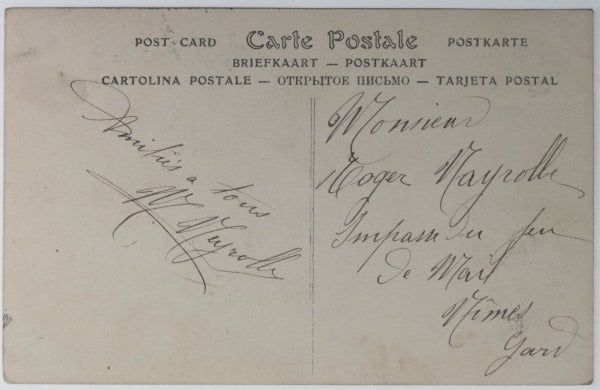 POST CARD Carte Postale POSTKARTE
BRIEFKAART — POSTKAART
CARTOLINA POSTALE — ОТКРЫТОЕ ПИСЬМО — TARJETA POSTAL
Amitiés a tous
Mayrolle
Monsieur
Roger Mayrolle
Impasse du Jeu
de Mail
Nîmes
Gard